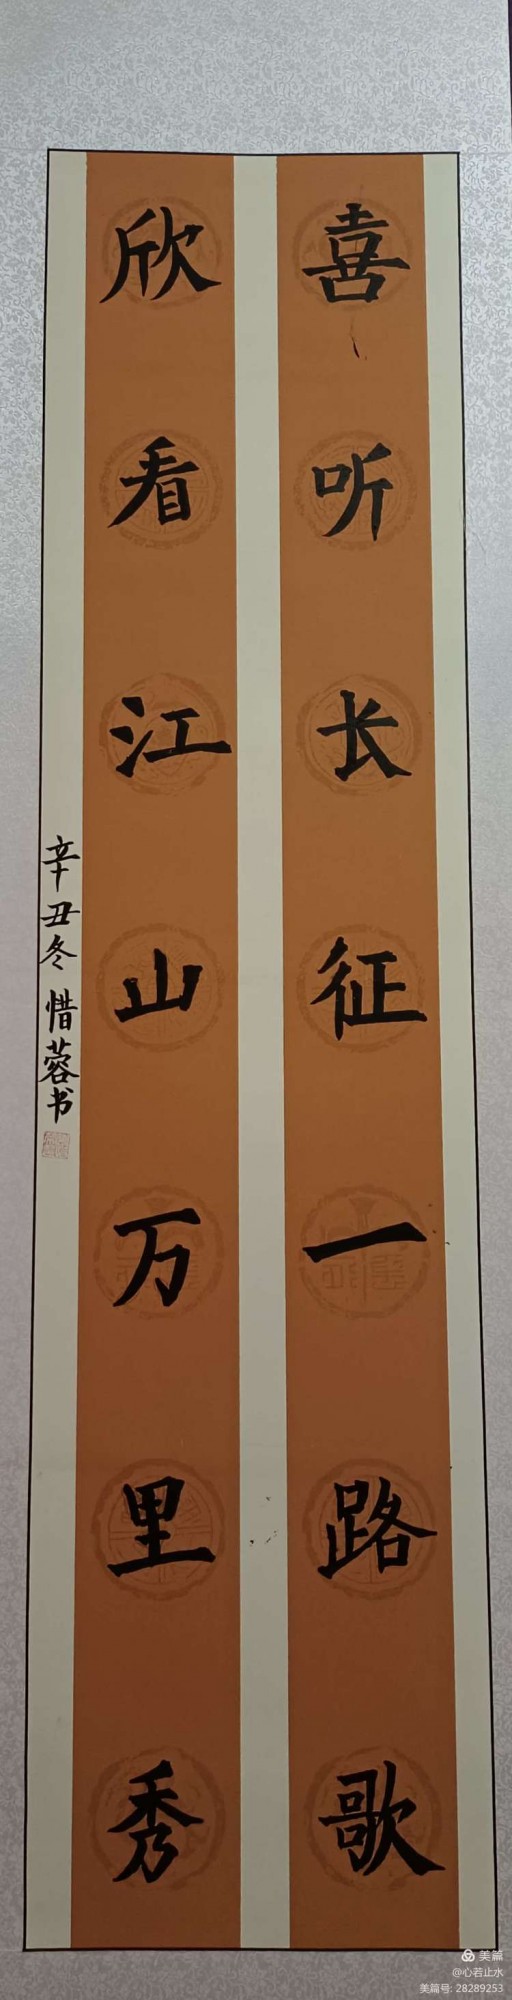 喜听长征一路歌
欣看江山万里秀
辛丑冬 惜蓉书
美篇
@心若止水
美篇号: 28289253